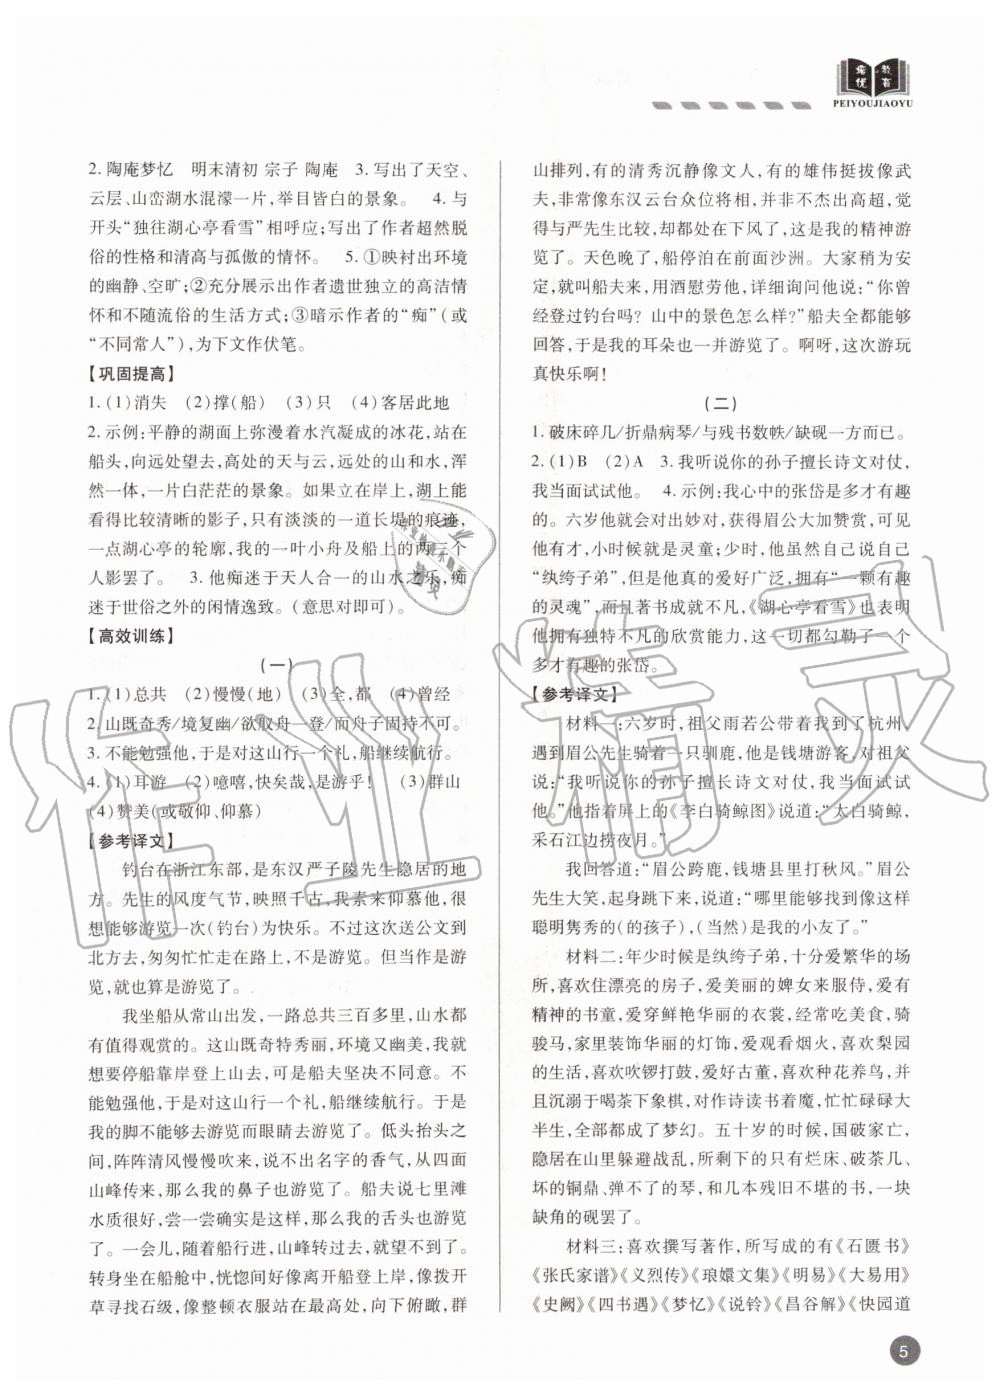 培优教育
PEIYOUJIAOYU
2. 陶庵梦忆　明末清初 宗子 陶庵　3. 写出了天空、
云层、山峦湖水混濛一片,举目皆白的景象。　4. 与
开头“独往湖心亭看雪”相呼应;写出了作者超然脱
俗的性格和清高与孤傲的情怀。　5. ①映衬出环境
的幽静、空旷;②充分展示出作者遗世独立的高洁情
怀和不随流俗的生活方式;③暗示作者的“痴”(或
“不同常人”),为下文作伏笔。
【巩固提高】
1. (1)消失　(2)撑(船)　(3)只　(4)客居此地
2. 示例:平静的湖面上弥漫着水汽凝成的冰花,站在
船头,向远处望去,高处的天与云,远处的山和水,浑
然一体,一片白茫茫的景象。如果立在岸上,湖上能
看得比较清晰的影子,只有淡淡的一道长堤的痕迹,
一点湖心亭的轮廓,我的一叶小舟及船上的两三个
人影罢了。　3. 他痴迷于天人合一的山水之乐,痴
迷于世俗之外的闲情逸致。(意思对即可)。
【高效训练】
(一)
1. (1)总共　(2)慢慢(地)　(3)全,都　(4)曾经
2. 山既奇秀/境复幽/欲舣舟一登/而舟子固持不可。
3. 不能勉强他,于是对这山行一个礼,船继续航行。
4. (1)耳游　(2)噫嘻,快矣哉,是游乎!　(3)群山
(4)赞美(或敬仰、仰慕)
【参考译文】
钓台在浙江东部,是东汉严子陵先生隐居的地
方。先生的风度气节,映照千古,我素来仰慕他,很
想能够游览一次(钓台)为快乐。不过这次送公文到
北方去,匆匆忙忙走在路上,不是游览。但当作是游
览,就也算是游览了。
我坐船从常山出发,一路总共三百多里,山水都
有值得观赏的。这山既奇特秀丽,环境又幽美,我甚
至想要停船靠岸登上山去,可是船夫坚决不同意。不
能勉强他,于是对这山行一个礼,船继续航行。于是
我的脚不能够去游览而眼睛去游览了。低头抬头之
间,阵阵清风慢慢吹来,说不出名字的香气,从四面
山峰传来,那么我的鼻子也游览了。船夫说七里滩
水质很好,尝一尝确实是这样,那么我的舌头也游览
了。一会儿,随着船行进,山峰转过去,就望不到了。
转身坐在船舱中,恍惚间好像离开船登上岸,像拨开
草寻找石级,像整顿衣服站在最高处,向下俯瞰,群
山排列,有的清秀沉静像文人,有的雄伟挺拔像武
夫,非常像东汉云台众位将相,并非不杰出高超,觉
得与严先生比较,却都处在下风了,这是我的精神游
览了。天色晚了,船停泊在前面沙洲。大家稍为安
定,就叫船夫来,用酒慰劳他,详细询问他说:“你曾
经登过钓台吗?山中的景色怎么样?”船夫全都能够
回答,于是我的耳朵也一并游览了。啊呀,这次游玩
真快乐啊!
(二)
1. 破床碎几/折鼎病琴/与残书数帙/缺砚一方而已。
2. (1)B　(2)A　3. 我听说你的孙子擅长诗文对仗,
我当面试试他。　4. 示例:我心中的张岱是多才有趣
的。六岁他就会对出妙对,获得眉公大加赞赏,可见
他有才,小时候就是灵童;少时,他虽然自己说自己
“纨绔子弟”,但他真的爱好广泛,拥有“一颗有趣
的灵魂”,而且著书成就不凡,《湖心亭看雪》也表明
他拥有独特不凡的欣赏能力,这一切都勾勒了一个
多才有趣的张岱。
【参考译文】
材料一:六岁时,祖父雨若公带着我到了杭州,
遇到眉公先生骑着一只驯鹿,他是钱塘游客,对祖父
说:“我听说你的孙子擅长诗文对仗,我当面试试
他。”他指着屏上的《李白骑鲸图》说道:“太白骑鲸,
采石江边捞夜月。”
我回答道:“眉公跨鹿,钱塘县里打秋风。”眉公
先生大笑,起身跳下来,说道:“哪里能够找到像这样
聪明隽秀的(的孩子),(当然)是我的小友了。”
材料二:年少时候是纨绔子弟,十分爱繁华的场
所,喜欢住漂亮的房子,爱美丽的婢女来服侍,爱有
精神的书童,爱穿鲜艳华丽的衣裳,经常吃美食,骑
骏马,家里装饰华丽的灯饰,爱观看烟火,喜欢梨园
的生活,喜欢吹锣打鼓,爱好古董,喜欢种花养鸟,并
且沉溺于喝茶下象棋,对作诗读书着魔,忙忙碌碌大
半生,全部都成了梦幻。五十岁的时候,国破家亡,
隐居在山里躲避战乱,所剩下的只有烂床、破茶几、
坏的铜鼎、弹不了的琴,和几本残旧不堪的书,一块
缺角的砚罢了。
材料三:喜欢撰写著作,所写成的有《石匮书》
《张氏家谱》《义烈传》《琅嬛文集》《明易》《大易用》
《史阙》《四书遇》《梦忆》《说铃》《昌谷解》《快园道
5
作业精灵